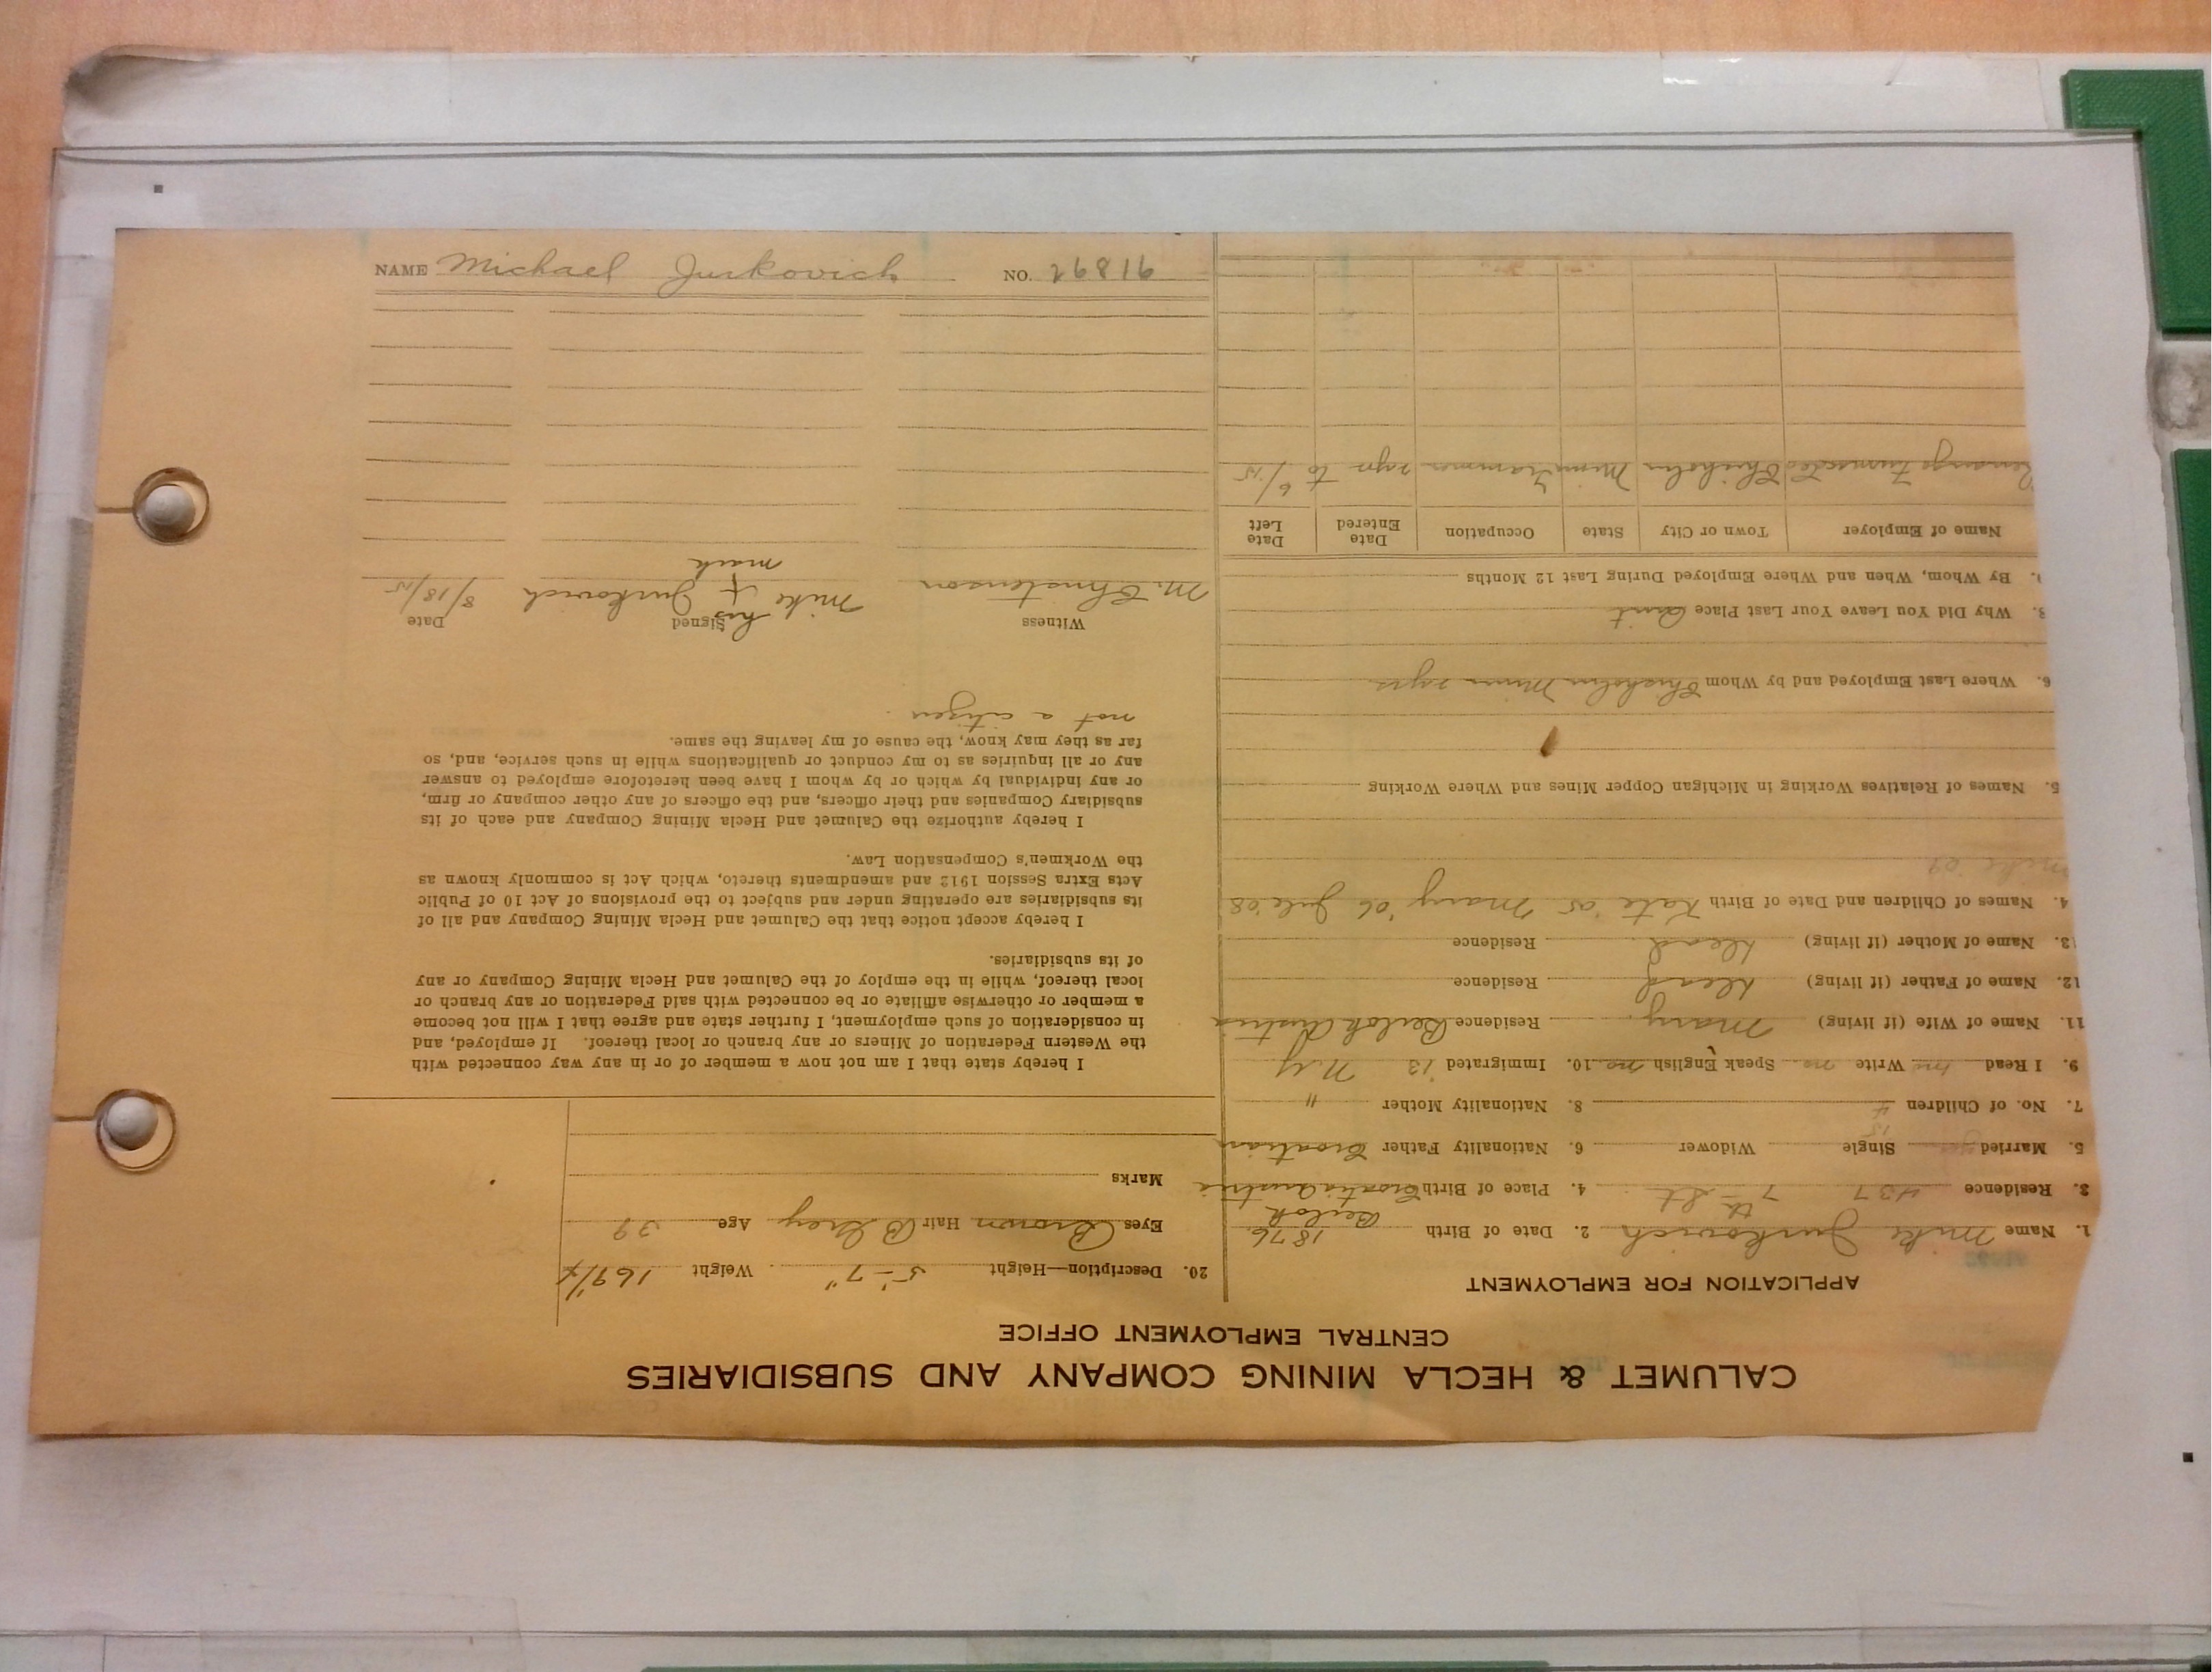 CALUMET & HECLA MINING COMPANY AND SUBSIDIARIES
CENTRAL EMPLOYMENT OFFICE
APPLICATION FOR EMPLOYMENT
1. Name Mike Jurkovich 2. Date of Birth 1876
3. Residence 437 7th St 4. Place of Birth Croatia Austria
5. Married Single Widower 6. Nationality Father Croatian
7. No. of Children 4 8. Nationality Mother "
9. I Read no Write no Speak English no 10. Immigrated '13 N.Y
11. Name of Wife (if living) Mary. Residence Austria
12. Name of Father (if living) Dead Residence
13. Name of Mother (if living) Dead Residence
4. Names of Children and Date of Birth Kate '05 Mary '06 Jule '08
Mike '09
5. Names of Relatives Working in Michigan Copper Mines and Where Working
6. Where Last Employed and by Whom Chisholm Minn 2 yrs
Why Did You Leave Your Last Place Quit
By Whom, When and Where Employed During Last 12 Months
Name of Employer Town or City State Occupation Date Entered Date Left
Chisholm Minn Trammer 2 yrs to 6/15
20. Description—Height 5'-7" Weight 169
Eyes Brown Hair B Grey Age 39
Marks
I hereby state that I am not now a member of or in any way connected with
the Western Federation of Miners or any branch or local thereof. If employed, and
in consideration of such employment, I further state and agree that I will not become
a member or otherwise affiliate or be connected with said Federation or any branch or
local thereof, while in the employ of the Calumet and Hecla Mining Company or any
of its subsidiaries.
I hereby accept notice that the Calumet and Hecla Mining Company and all of
its subsidiaries are operating under and subject to the provisions of Act 10 of Public
Acts Extra Session 1912 and amendments thereto, which Act is commonly known as
the Workmen's Compensation Law.
I hereby authorize the Calumet and Hecla Mining Company and each of its
subsidiary Companies and their officers, and the officers of any other company or firm,
or any individual by which or by whom I have been heretofore employed to answer
any or all inquiries as to my conduct or qualifications while in such service, and, so
far as they may know, the cause of my leaving the same.
not a citizen.
Witness Signed Date
M. Christenson Mike his x mark Jurkovich 8/18/15
NAME Michael Jurkovich NO. 26816